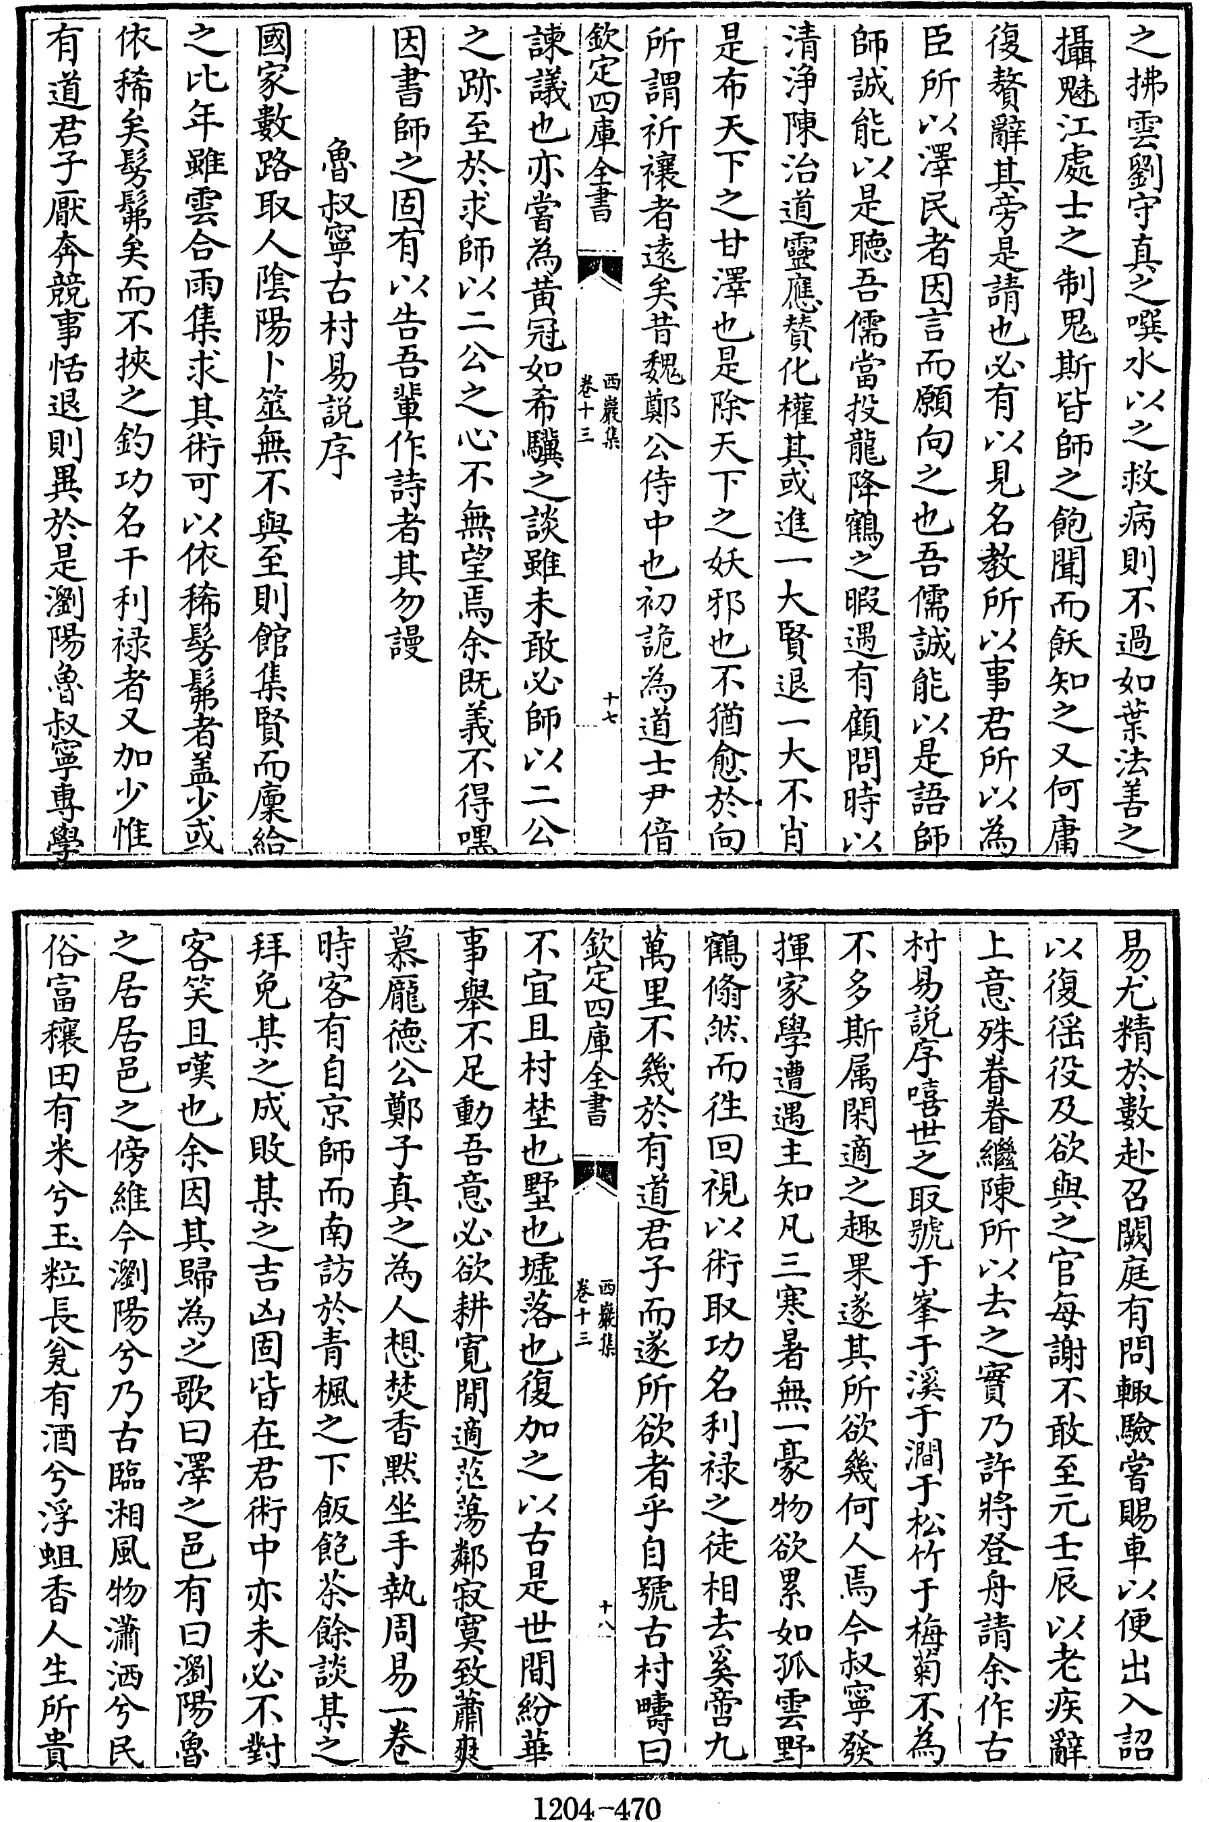 之拂雲劉守真之噀水以之救病則不過如葉法善之
攝魅江處士之制鬼斯皆師之飽聞而飫知之又何庸
復贅辭其旁是請也必有以見名教所以事君所以為
臣所以澤民者因言而願向之也吾儒誠能以是語師
師誠能以是聴吾儒當投龍降鶴之暇遇有顧問時以
清淨陳治道靈應賛化權其或進一大賢退一大不肖
是布天下之甘澤也是除天下之妖邪也不猶愈於向
所謂祈禳者逺矣昔魏鄭公侍中也初詭為道士尹愔
欽定四庫全書
西巖集
卷十三
十七
諫議也亦嘗為黄冠如希驥之談雖未敢必師以二公
之跡至於求師以二公之心不無望焉余既義不得嘿
因書師之固有以告吾輩作詩者其勿謾
魯叔寧古村易說序
國家數路取人隂陽卜筮無不與至則館集賢而廩給
之比年雖雲合雨集求其術可以依稀髣髴者盖少或
依稀矣髣髴矣而不挾之釣功名干利禄者又加少惟
有道君子厭奔競事恬退則異於是瀏陽魯叔寧專學
易尤精於數赴召闕庭有問輙驗嘗賜車以便出入詔
以復徭役及欲與之官每謝不敢至元壬辰以老疾辭
上意殊眷眷繼陳所以去之實乃許將登舟請余作古
村易說序嘻世之取號于峯于溪于澗于松竹于梅菊不為
不多斯属閑適之趣果遂其所欲幾何人焉今叔寧發
揮家學遭遇主知凡三寒暑無一豪物欲累如孤雲野
鶴翛然而徃回視以術取功名利禄之徒相去奚啻九
萬里不幾於有道君子而遂所欲者乎自號古村疇曰
欽定四庫全書
西巖集
卷十三
十八
不宜且村埜也墅也墟落也復加之以古是世間紛華
事舉不足動吾意必欲耕寛閒適茫蕩鄰寂寞致蕭爽
慕龐徳公鄭子真之為人想焚香黙坐手執周易一巻
時客有自京師而南訪於青楓之下飯飽茶餘談某之
拜免某之成敗某之吉凶固皆在君術中亦未必不對
客笑且嘆也余因其歸為之歌曰澤之邑有曰瀏陽魯
之居居邑之傍維今瀏陽兮乃古臨湘風物瀟洒兮民
俗富穰田有米兮玉粒長瓮有酒兮浮蛆香人生所貴
1204-470